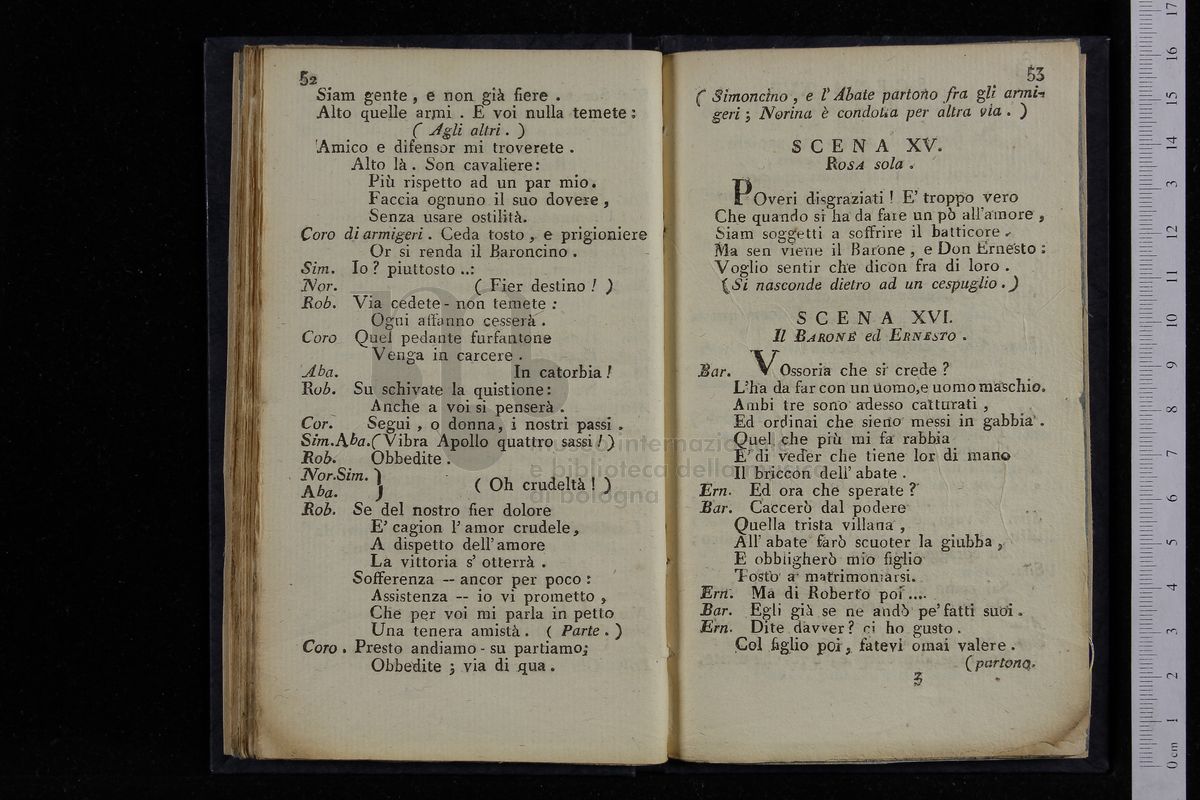 52
Siam gente , e non già fiere .
Alto quelle armi . E voi nulla temete :
( Agli altri . )
Amico e difensor mi troverete .
Alto là . Son cavaliere :
Più rispetto ad un par mio .
Faccia ognuno il suo dovere ,
Senza usare ostilità .
Coro di armigeri . Ceda tosto , e prigioniere
Or si renda il Baroncino .
Sim. Io ? piuttosto ..:
Nor. ( Fier destino ! )
Rob. Via cedete - non temete :
Ogni affanno cesserà .
Coro Quel pedante furfantone
Venga in carcere .
Aba. In catorbia !
Rob. Su schivate la quistione :
Anche a voi si penserà .
Cor. Segui , o donna , i nostri passi .
Sim.Aba.( Vibra Apollo quattro sassi ! )
Rob. Obbedite .
Nor.Sim. }
Aba. } ( Oh crudeltà ! )
Rob. Se del nostro fier dolore
E' cagion l' amor crudele ,
A dispetto dell' amore
La vittoria s' otterrà .
Sofferenza -- ancor per poco :
Assistenza -- io vi prometto ,
Che per voi mi parla in petto
Una tenera amistà . ( Parte . )
Coro . Presto andiamo - su partiamo ;
Obbedite ; via di qua .
53
( Simoncino , e l' Abate partono fra gli armi-
geri ; Norina è condotta per altra via . )
SCENA XV.
ROSA sola .
POveri disgraziati ! E' troppo vero
Che quando si ha da fare un pò all'amore ,
Siam soggetti a soffrire il batticore .
Ma sen viene il Barone , e Don Ernesto :
Voglio sentir che dicon fra di loro .
( Si nasconde dietro ad un cespuglio . )
SCENA XVI.
Il BARONE ed ERNESTO .
Bar. VOssoria che si crede ?
L'ha da far con un uomo,e uomo maschio.
Ambi tre sono adesso catturati ,
Ed ordinai che sieno messi in gabbia .
Quel che più mi fa rabbia
E' di veder che tiene lor di mano
Il briccon dell' abate .
Ern. Ed ora che sperate ?
Bar. Caccerò dal podere
Quella trista villana ,
All' abate farò scuoter la giubba ,
E obbligherò mio figlio
Tosto a matrimoniarsi .
Ern. Ma di Roberto poi ....
Bar. Egli già se ne andò pe' fatti suoi .
Ern. Dite davver ? ci ho gusto .
Col figlio poi , fatevi omai valere .
( partono.
3
museo internazionale
e biblioteca della musica
di bologna
0 cm 1 2 3 4 5 6 7 8 9 10 11 12 13 14 15 16 17